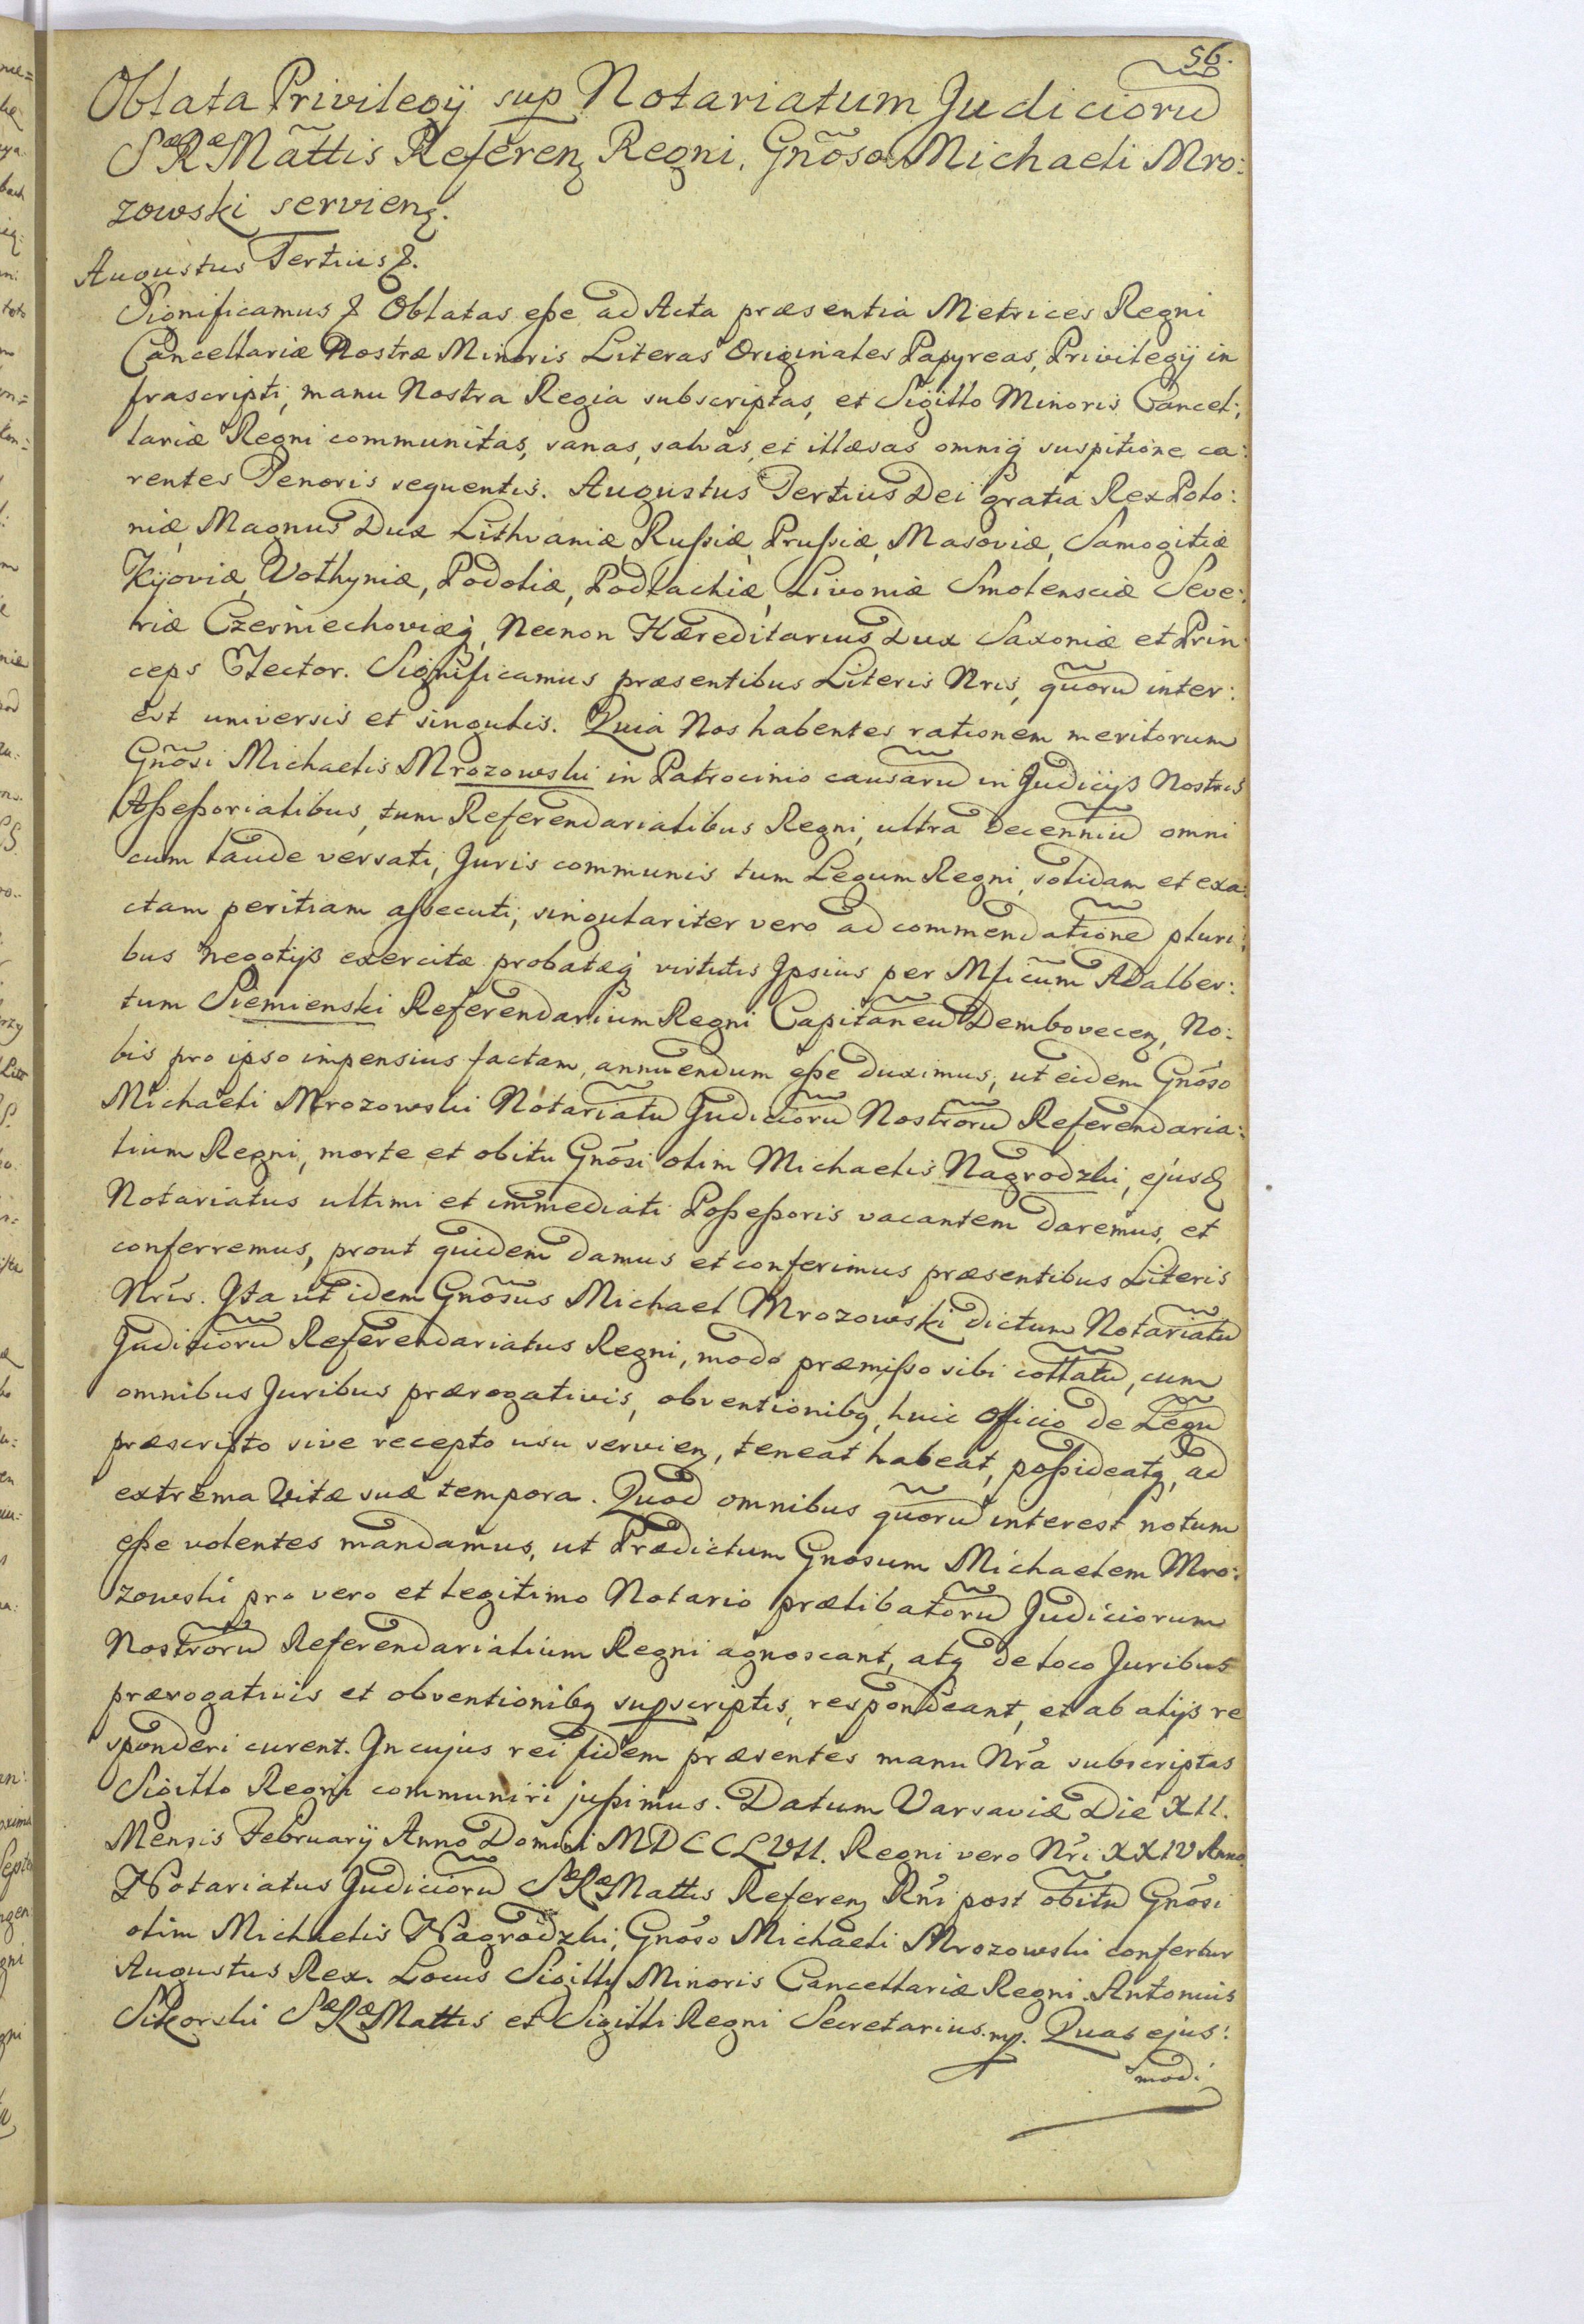 56.
Oblata Privilegij sup Notariatum Judicioru͂
SæRæMattis Referenꝫ Regni, Gnõso Michaeli Mro:
zowski servienꝫ.
Augustus Tertius &.
Significamus & Oblatas eße ad Acta præsentia Metrices Regni
Cancellariæ Nostræ Minoris Literas Originales Papyreas, Privilegij in
frascripti, manu Nostra Regia subscriptas, et Sigillo Minoris Cancel:
lariæ Regni communitas, sanas, salvas, et illæsas omniq suspitione ca:
rentes Tenoris sequentis. Augustus Tertius Dei gratia Rex Polo:
niæ, Magnus Dux Lithvaniæ, Rußiæ, Prußiæ, Masoviæ, Samogitiæ
Kijoviæ, Volhyniæ, Podoliæ, Podlachiæ, Livoniæ Smolensciæ Seve:
riæ Czerniechoviæq, Necnon Hæreditarius Dux Saxoniæ et Prin
ceps Elector. Significamus præsentibus Literis Nris, quoru͂ inter:
est universis et singulis. Quia Nos habentes rationem meritorum
Gnõsi Michaelis Mrozowski in Patrocinio causaru͂ in Judicijs Nostris
Aßeßorialibus, tum Referendarialibus Regni, ultra decenniu͂ omni
cum laude versati, Juris communis tum Legum Regni, solidam et exa:
ctam peritiam assecuti, singulariter vero ad commendatione͂ pluri:
bus negotijs exercitæ probatæq virtutis Ipsius per Mficum Adalber:
tum Siemienski Referendarium Regni Capitaneu͂ Dembovecenꝫ, No:
bis pro ipso impensius factam, annuendum eße duximus, ut eidem Gnõso
Michaeli Mrozowski Notariatu͂ Judicioru͂ Nostroru͂ Referendaria:
lium Regni, morte et obitu Gnõsi olim Michaelis Nagrodzki, ejusdꝫ
Notariatus ultimi et immediati Poßeßoris vacantem daremus, et
conferremus, prout quidem damus et conferimus præsentibus Literis
Nris. Ita ut idem Gnõsus Michael Mrozowski dictum Notariatu͂
Judicioru͂ Referendariatus Regni, modo præmisso sibi collatu͂, cum
omnibus Juribus prærogativis, obventionibꝫ, huic Officio de Legu͂
præscripto sive recepto usu servienꝫ, teneat habeat, poßideatq, ad
extrema Vitæ suæ tempora. Quod omnibus quoru͂ interest notum
eße volentes mandamus, ut Prædictum Gnosum Michaelem Mro:
zowski pro vero et legitimo Notario prælibatoru͂ Judiciorum
Nostroru͂ Referendarialium Regni agnoscant, atq de loco Juribus
prærogativis et obventionibꝫ supscriptis, respondeant, et ab alijs re
sponderi curent. In cujus rei fidem præsentes manu Nra subscriptas
Sigillo Regni communiri jußimus. Datum Varsaviæ Die XII.
Mensis Februarij Anno Domini MDCCLVII. Regni vero Nri XXIV Anno.
Notariatus Judicioru͂ SæRæMattis Referenꝫ Rni post obitu͂ Gnõsi
olim Michaelis Nagrodzki, Gnõso Michaeli Mrozowski confertur
Augustus Rex. Locus Sigilli Minoris Cancellariæ Regni. Antonius
Sikorski SæRæMattis et Sigilli Regni Secretarius. mp. Quas ejus:
modi